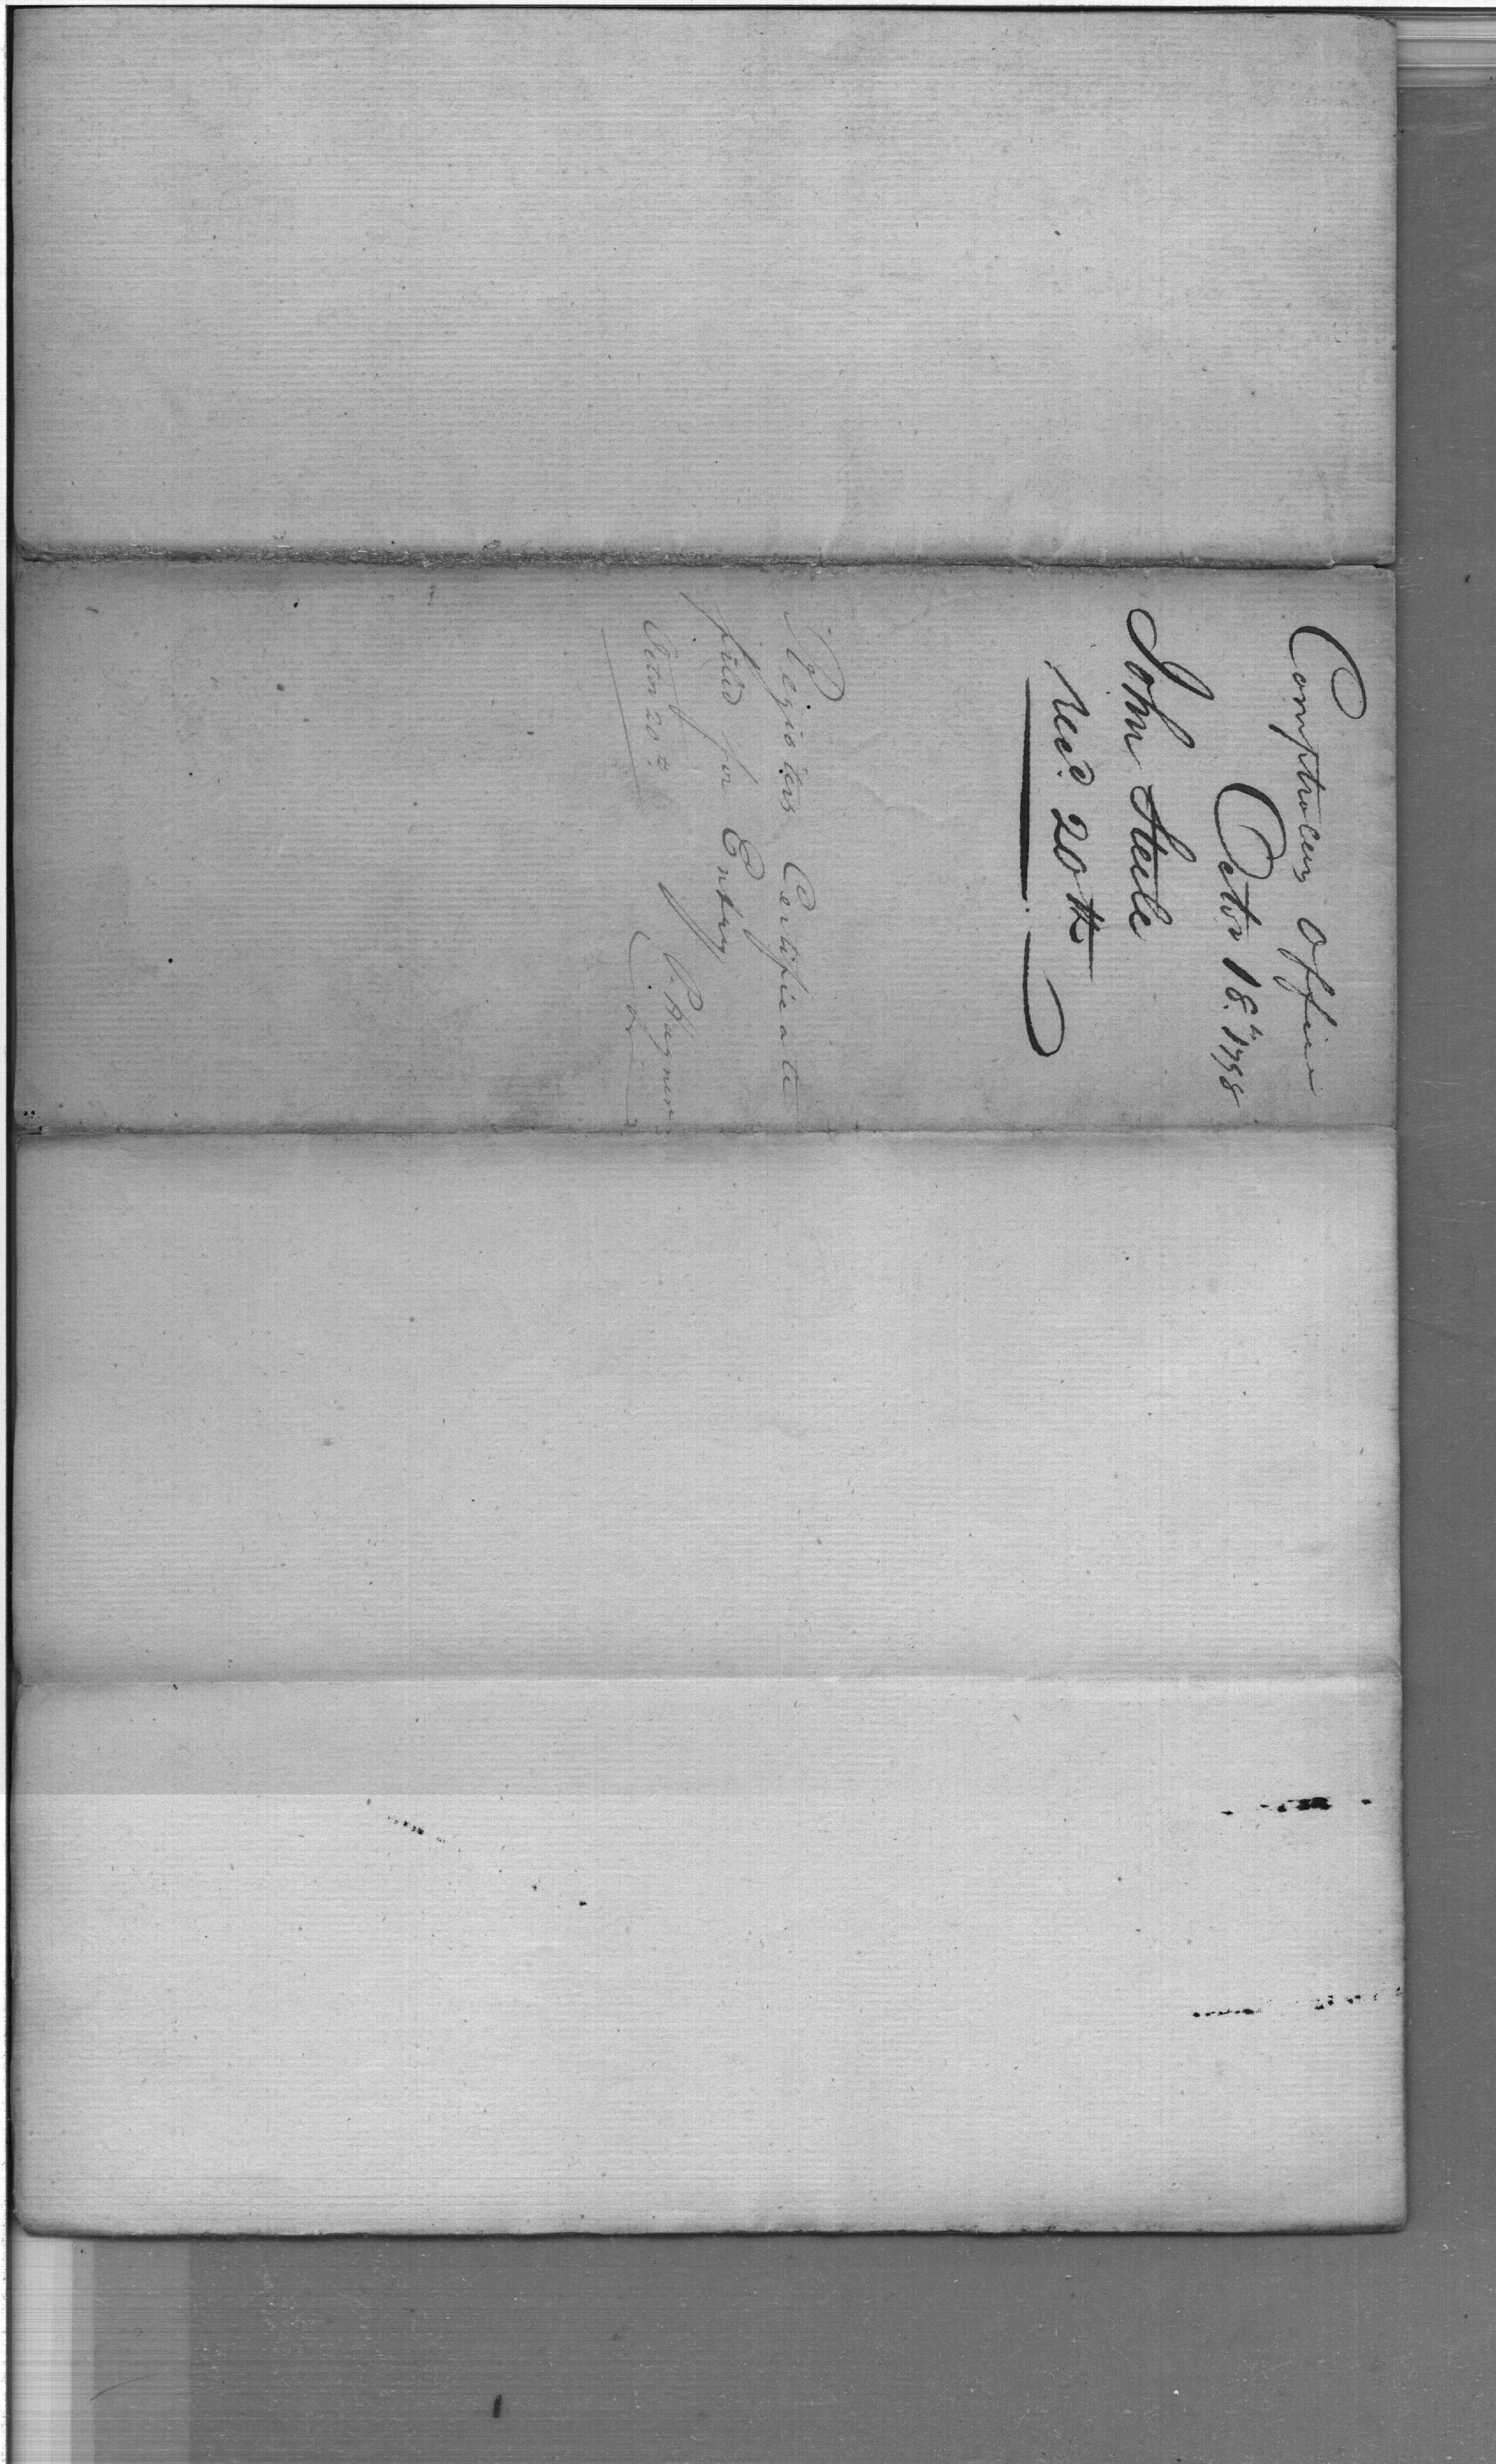 Comptrollers Office
Octor 18th 1798
John Steele
Recd. 20th
Registers Certificate
filed for Entry
Octor 20th.
P. Hagner